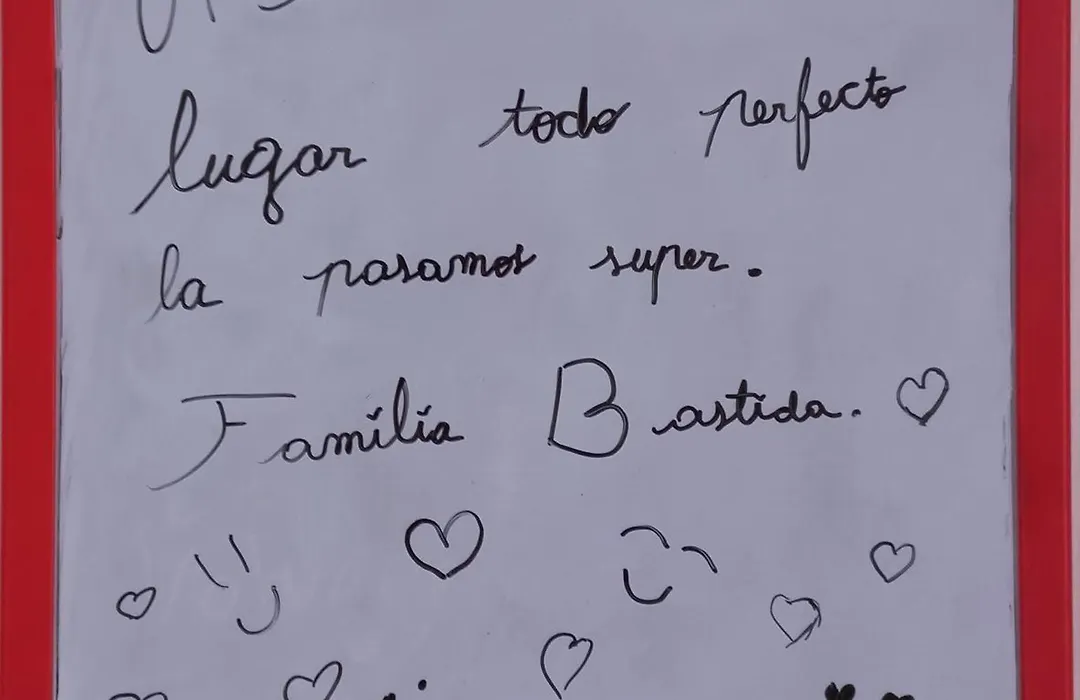 lugar todo perfecto
la pasamos super.
Familia Bastida.